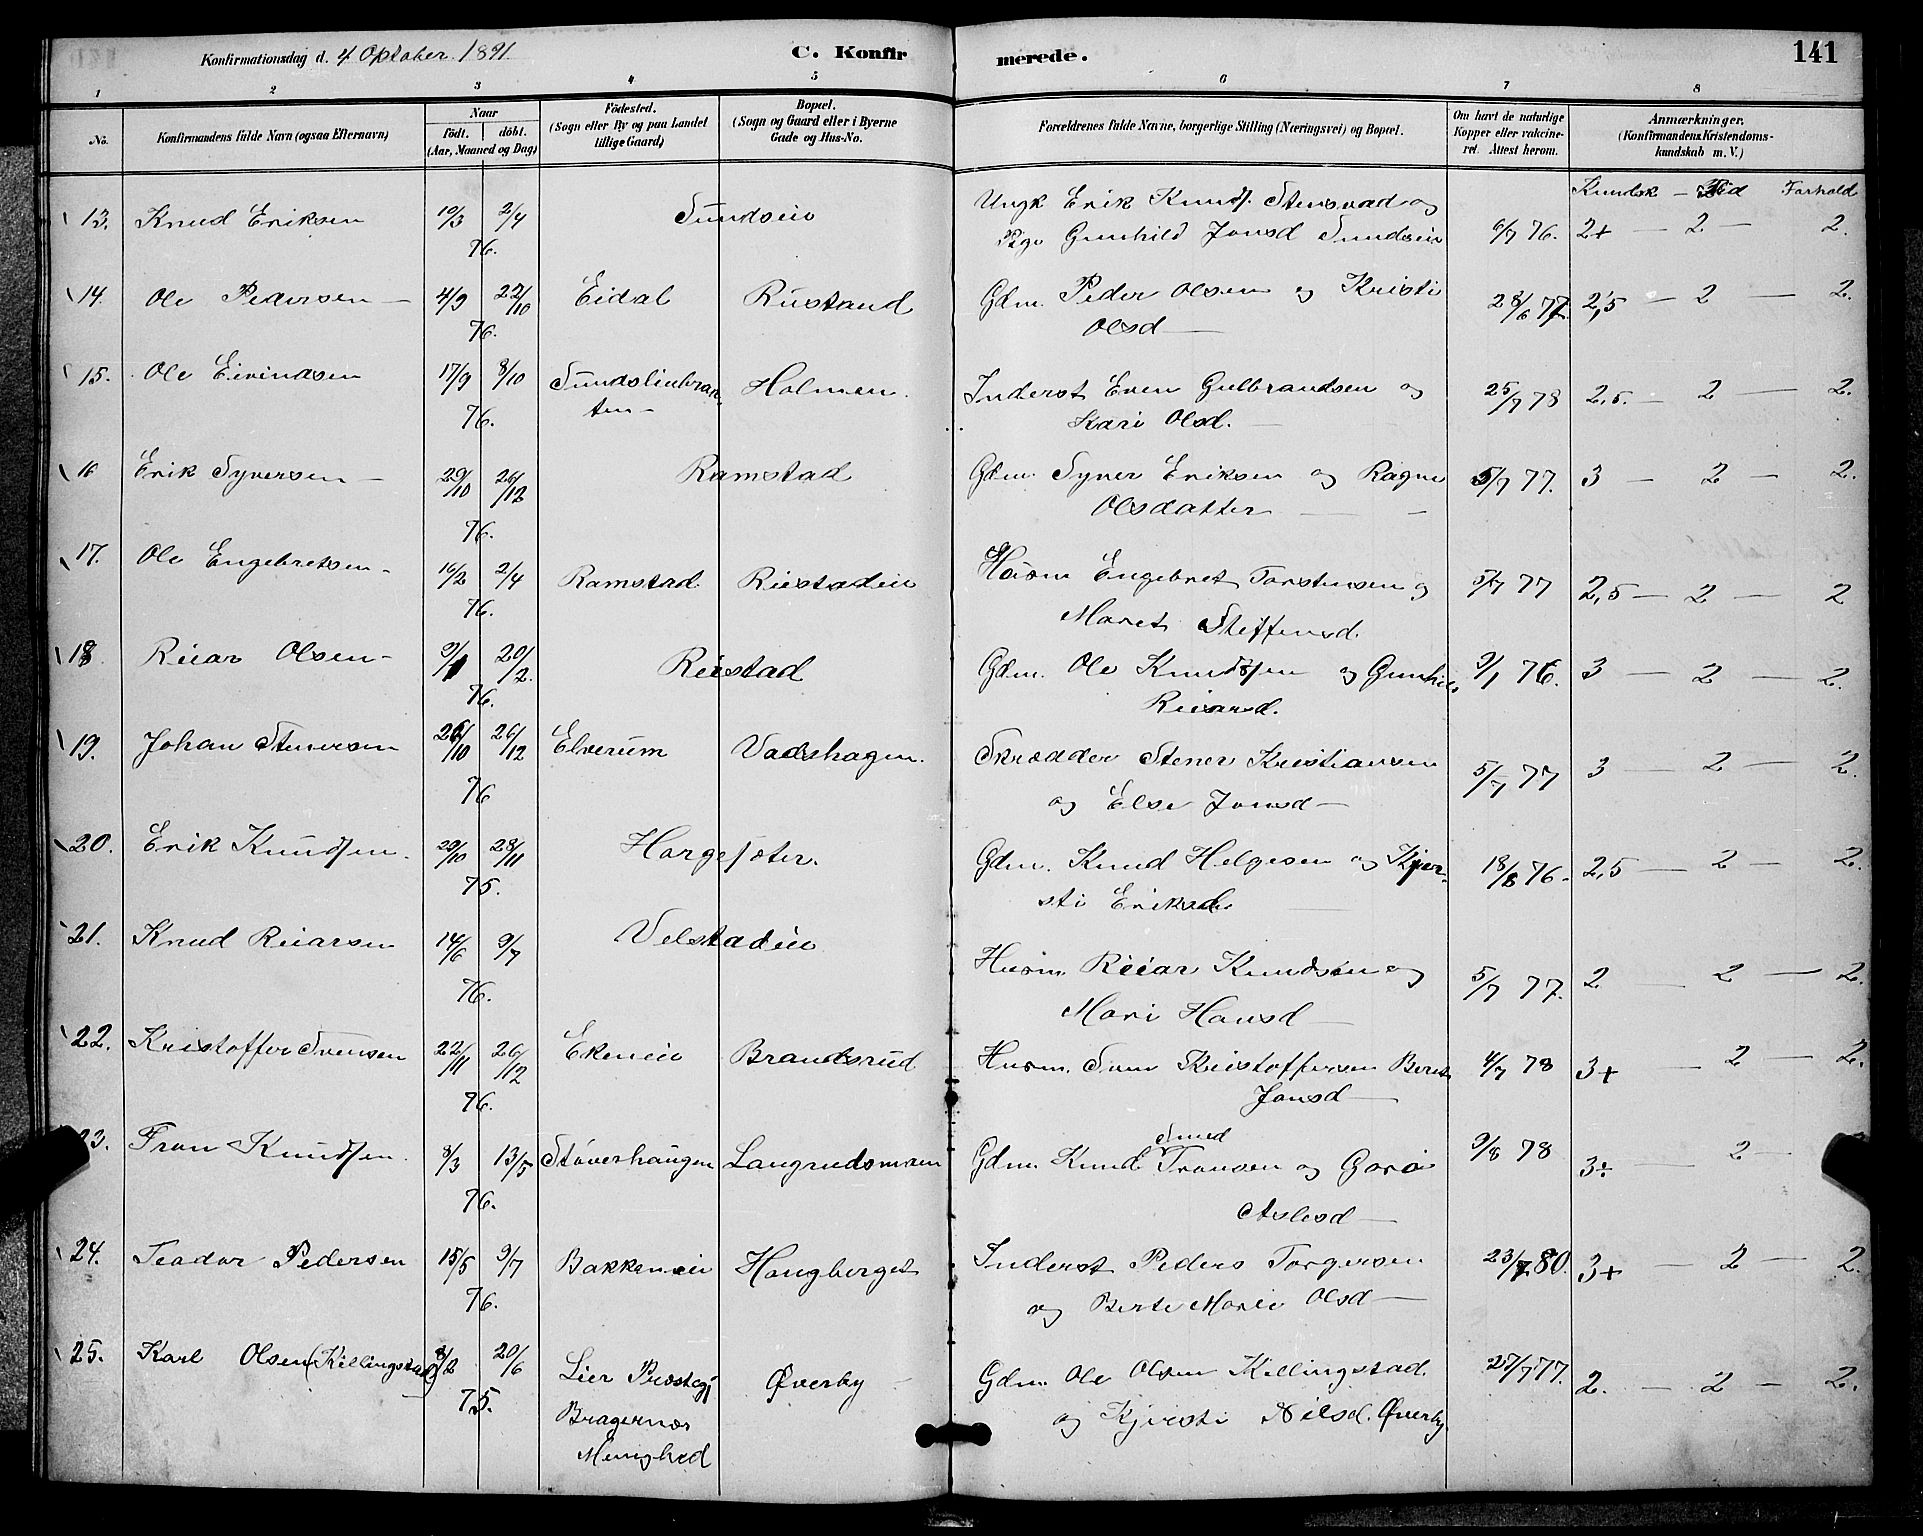 Konfirmationsdag d. 4 Oktober 1891.
C. Konfirmerede.
141
1 2 3 4 5 6 7 8
No.
Konfirmandens fulde Navn (ogsaa Efternavn)
Naar
födt. döbt.
(Aar, Maaned og Dag)
Födested.
(Sogn eller By og paa Landet
tillige Gaard)
Bopæl.
(Sogn og Gaard eller i Byerne
Gade og Hus-No.
Forældrenes fulde Navne, borgerlige Stilling (Næringsvei) og Bopæl.
Om havt de naturlige
Kopper eller vakcine-
ret. Attest herom.
Anmærkninger.
(Konfirmandens Kristendoms-
kundskab m. V.)
Kundsk — Flid Forhold
13. Knud Eriksen 10/3 2/4 76. Sundseie
Ungk Erik Knuds. Stensvad og
Pige Gunhild Jonsd Sundseie 6/7 76. 2+ — 2 — 2.
14. Ole Pedersen — 4/9 22/10 76. Eidal Rustand
Gdm. Peder Olsen og Kristi
Olsd — 28/6 77. 2,5 — 2 — 2.
15. Ole Eivindsen 17/9 8/10 76. Sundslinbraa-
ten — Holmen.
Inderst Even Gulbrandsen og
Kari Olsd. — 25/7 78 2,5. — 2 — 2.
16 Erik Syversen — 29/10 26/12 76. Ramstad
Gdm. Syver Eriksen og Ragne
Olsdatter — 5/7 77. 3 — 2 — 2.
17. Ole Engebretsen — 16/2 2/4 76. Ramstad. Riistadeie
Husm Engebret Torstensen og
Maret Steffensd. 5/7 77 2,5 — 2 — 2
18. Reiar Olsen — 9/1 20/2. 76. Riistad
Gdm. Ole Knudsen og Gunhild
Reiarsd. 9/1 76. 3 — 2 — 2.
19. Johan Stenersen 26/10 26/12 76 Elverum Vadshagen.
Skrædder Stener Kristiansen
og Else Jonsd — 5/7 77 3 — 2 — 2.
20. Erik Knudsen. 29/10 28/11 75. Horgesæter.
Gdm. Knud Helgesen og Kjer-
sti Eriksd. — 18/8 76. 2,5 — 2 — 2.
21. Knud Reiarsen 14/6 9/7 76. Velstadeie
Husm. Reiar Knudsen og
Mari Hansd — 5/7 77. 2 — 2 — 2.
22. Kristoffer Svensen 22/11 26/12 76. Ekeneie Brandsrud
Husm. Sven Kristoffersen Berit
Jonsd — 4/7 78 3+ — 2 — 2.
23. Tron Knudsen. 8/3 13/5 76. Støverhaugen Langrudsmoen
Smed
Gdm. Knud Tronsen og Goro
Aslesd — 9/8 78 3÷ — 2 —
24. Teador Pedersen 15/5 9/7 76. Bakkeneie Haugberget
Inderst Peders Torgersen
og Berte Marie Olsd — 23/7 80. 3+ — 2 — 2.
25. Karl Olsen (Killingstad) 8/2 20/6 75. Lier Præstegj
Bragernæs
Menighed Øverby —
Gdm. Ole Olsen Killingstad.
og Kjersti Nilsd. Øverby 27/7 77. 2. — 2 — 2.